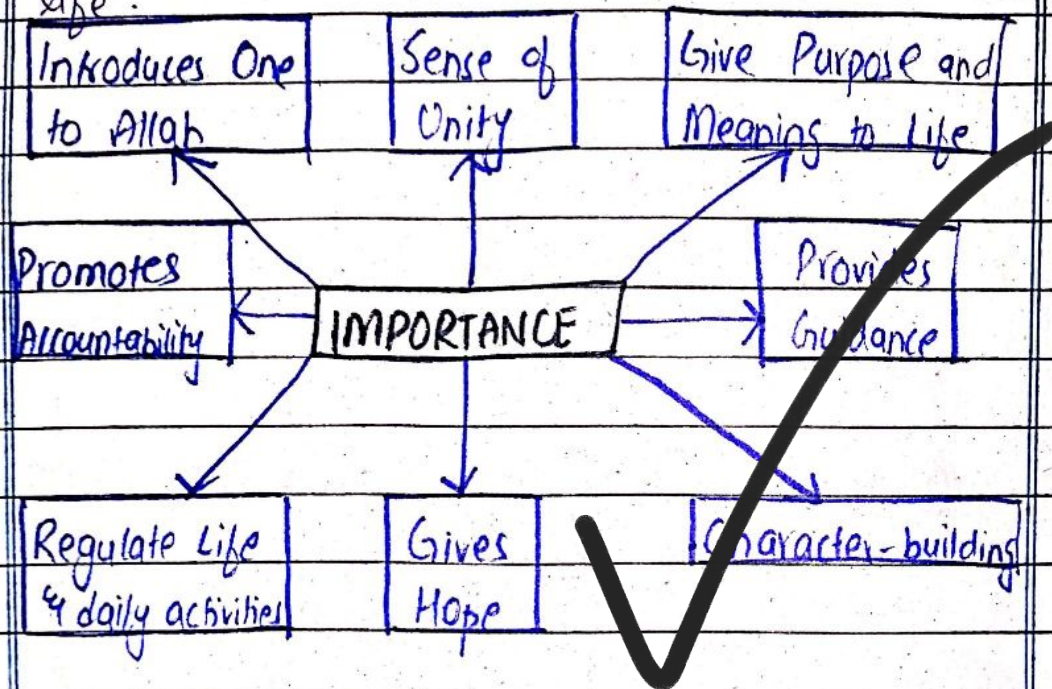 life.
Introduces One
to Allah
Sense of
Unity
Give Purpose and
Meaning to Life
Promotes
Accountability
IMPORTANCE
Provides
Guidance
Regulate Life
& daily activities
Gives
Hope
Character-building